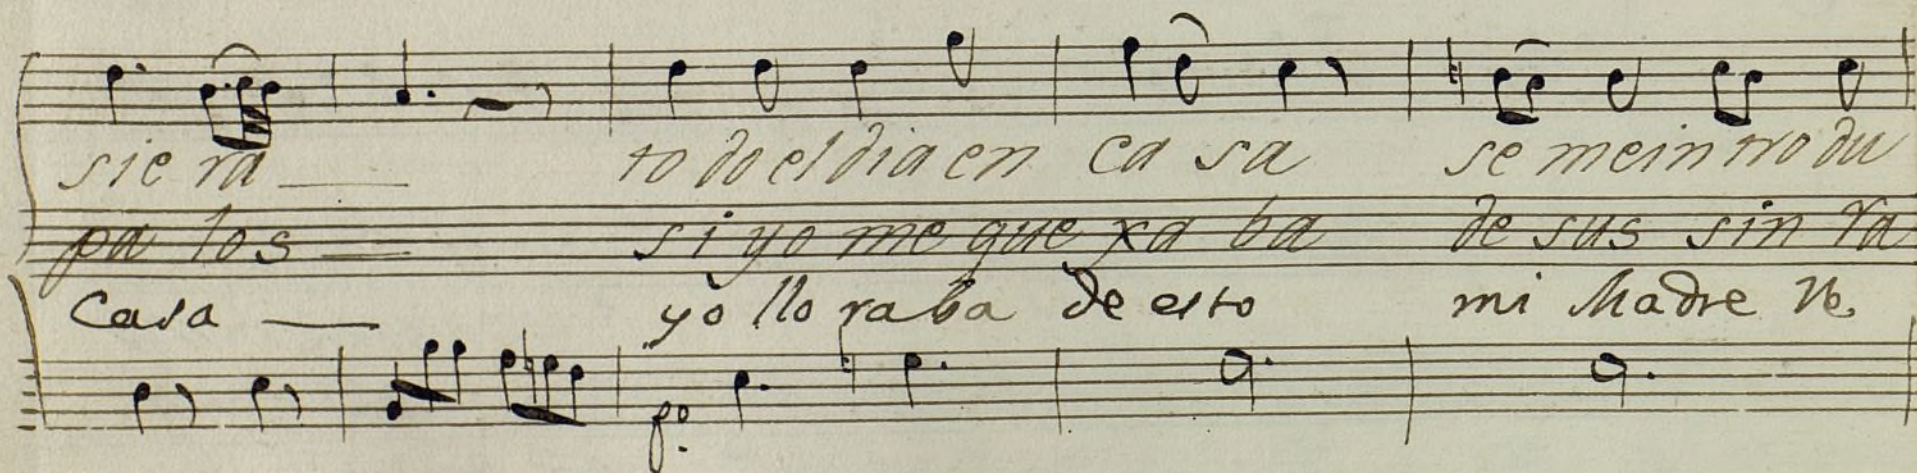 sie ra to do el dia en ca sa se me in tro du
pa los si yo me que xa ba de sus sin ra
Casa yo llo raba de esto mi Madre
po